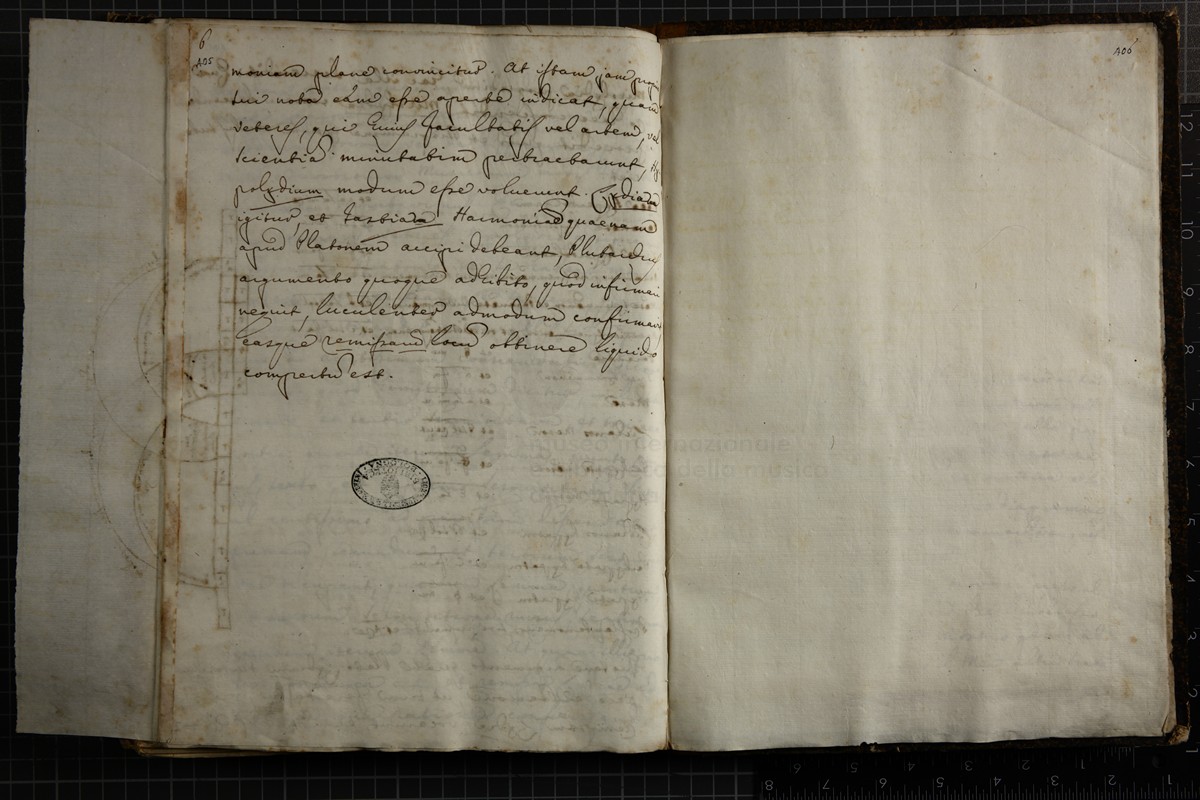 6
405
moniam plane convincitur. At istam jam propo
sui nota eam esse aperte indicat, quam
veteres, qui hujus facultatis vel artem, vel
scientiã minutatim pertractarunt, Hy
polydium modum esse voluerunt. Lydiam
igitur, et Iastiam Harmonias quaenam
apud Platonem accipi debeant, Plutarchus
argumento quoque adhibito, quod infirmari
nequit, luculenter admodum confirmavit
easque remissarum locum obtinere liquido
compertũ est.
406
museo internazionale
e biblioteca della musica